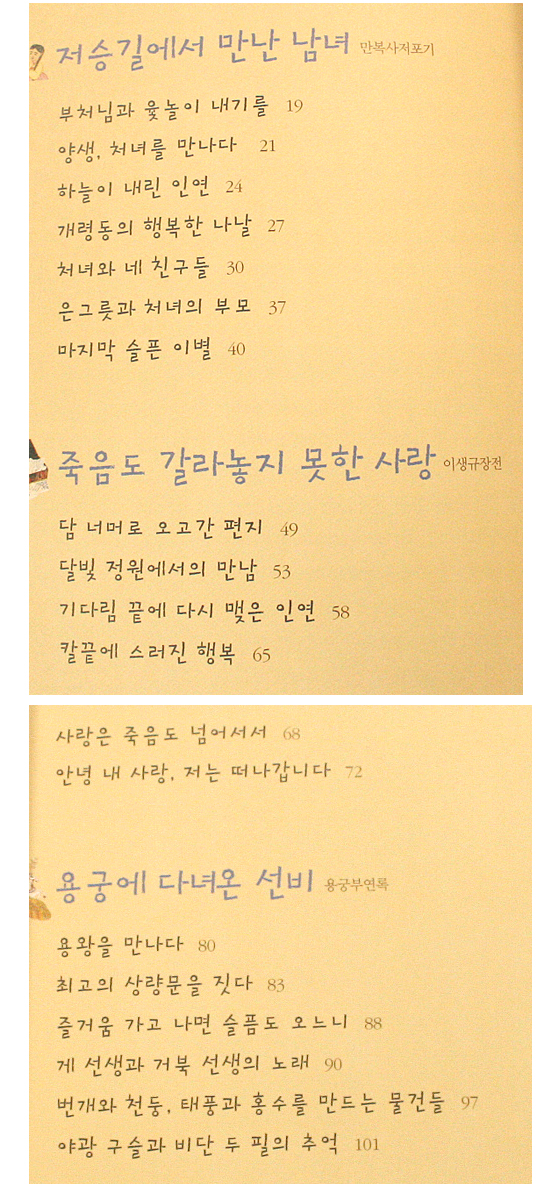 저승길에서 만난 남녀 만복사저포기
부처님과 윷놀이 내기를 19
양생, 처녀를 만나다 21
하늘이 내린 인연 24
개령동의 행복한 나날 27
처녀와 네 친구들 30
은그릇과 처녀의 부모 37
마지막 슬픈 이별 40
죽음도 갈라놓지 못한 사랑 이생규장전
담 너머로 오고간 편지 49
달빛 정원에서의 만남 53
기다림 끝에 다시 맺은 인연 58
칼끝에 스러진 행복 65
사랑은 죽음도 넘어서서 68
안녕 내 사랑, 저는 떠나갑니다 72
용궁에 다녀온 선비 용궁부연록
용왕을 만나다 80
최고의 상량문을 짓다 83
즐거움 가고 나면 슬픔도 오느니 88
게 선생과 거북 선생의 노래 90
번개와 천둥, 태풍과 홍수를 만드는 물건들 97
야광 구슬과 비단 두 필의 추억 101